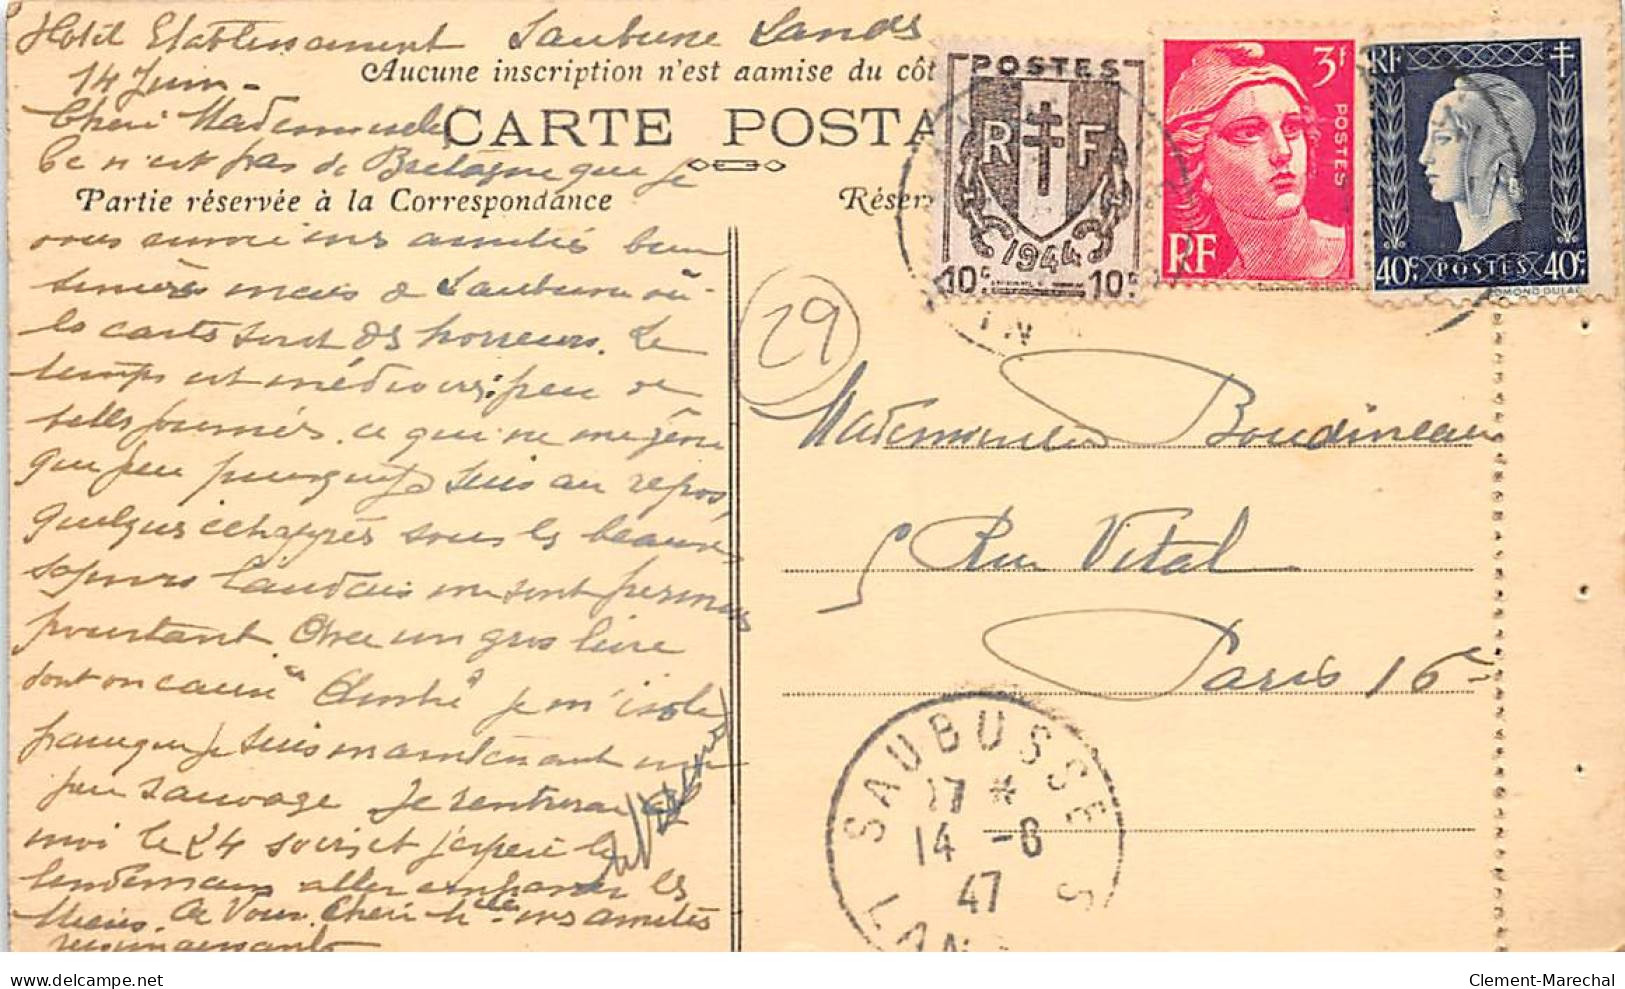 Hotel Etablissement Saubusse Landes
14 Juin -
Aucune inscription n'est admise du côt
Chère Mademoiselle
CARTE POSTA
Ce n'est pas de Bretagne que je
Partie réservée à la Correspondance
Réser
vous envoie mes amitiés bien
sincères mais de Saubusse où
les cartes sont des horreurs. Le
temps est médiocre: peu de
belles journées. ce qui ne me gêne
que peu puisque je suis au repos,
quelques échappées sous les beaux
sapins landais me sont permises
pourtant. Avec un gros livre
dont on cause je m'isole
parce que je suis maintenant un
peu sauvage Je rentrerai
moi le 24 soir et j'espère le
lendemain aller embrasser les
Miens. A Vous Chère Mlle mes amitiés
POSTES
RF
1944
10c 10c
3f
POSTES
RF
RF
40c POSTES 40c
EDMOND DULAC
29
Mademoiselle Boudineau
5 Rue Vital
Paris 16e
SAUBUSSE
17 *
14 -6
47
LANDES
delcampe.net
Clement-Marechal